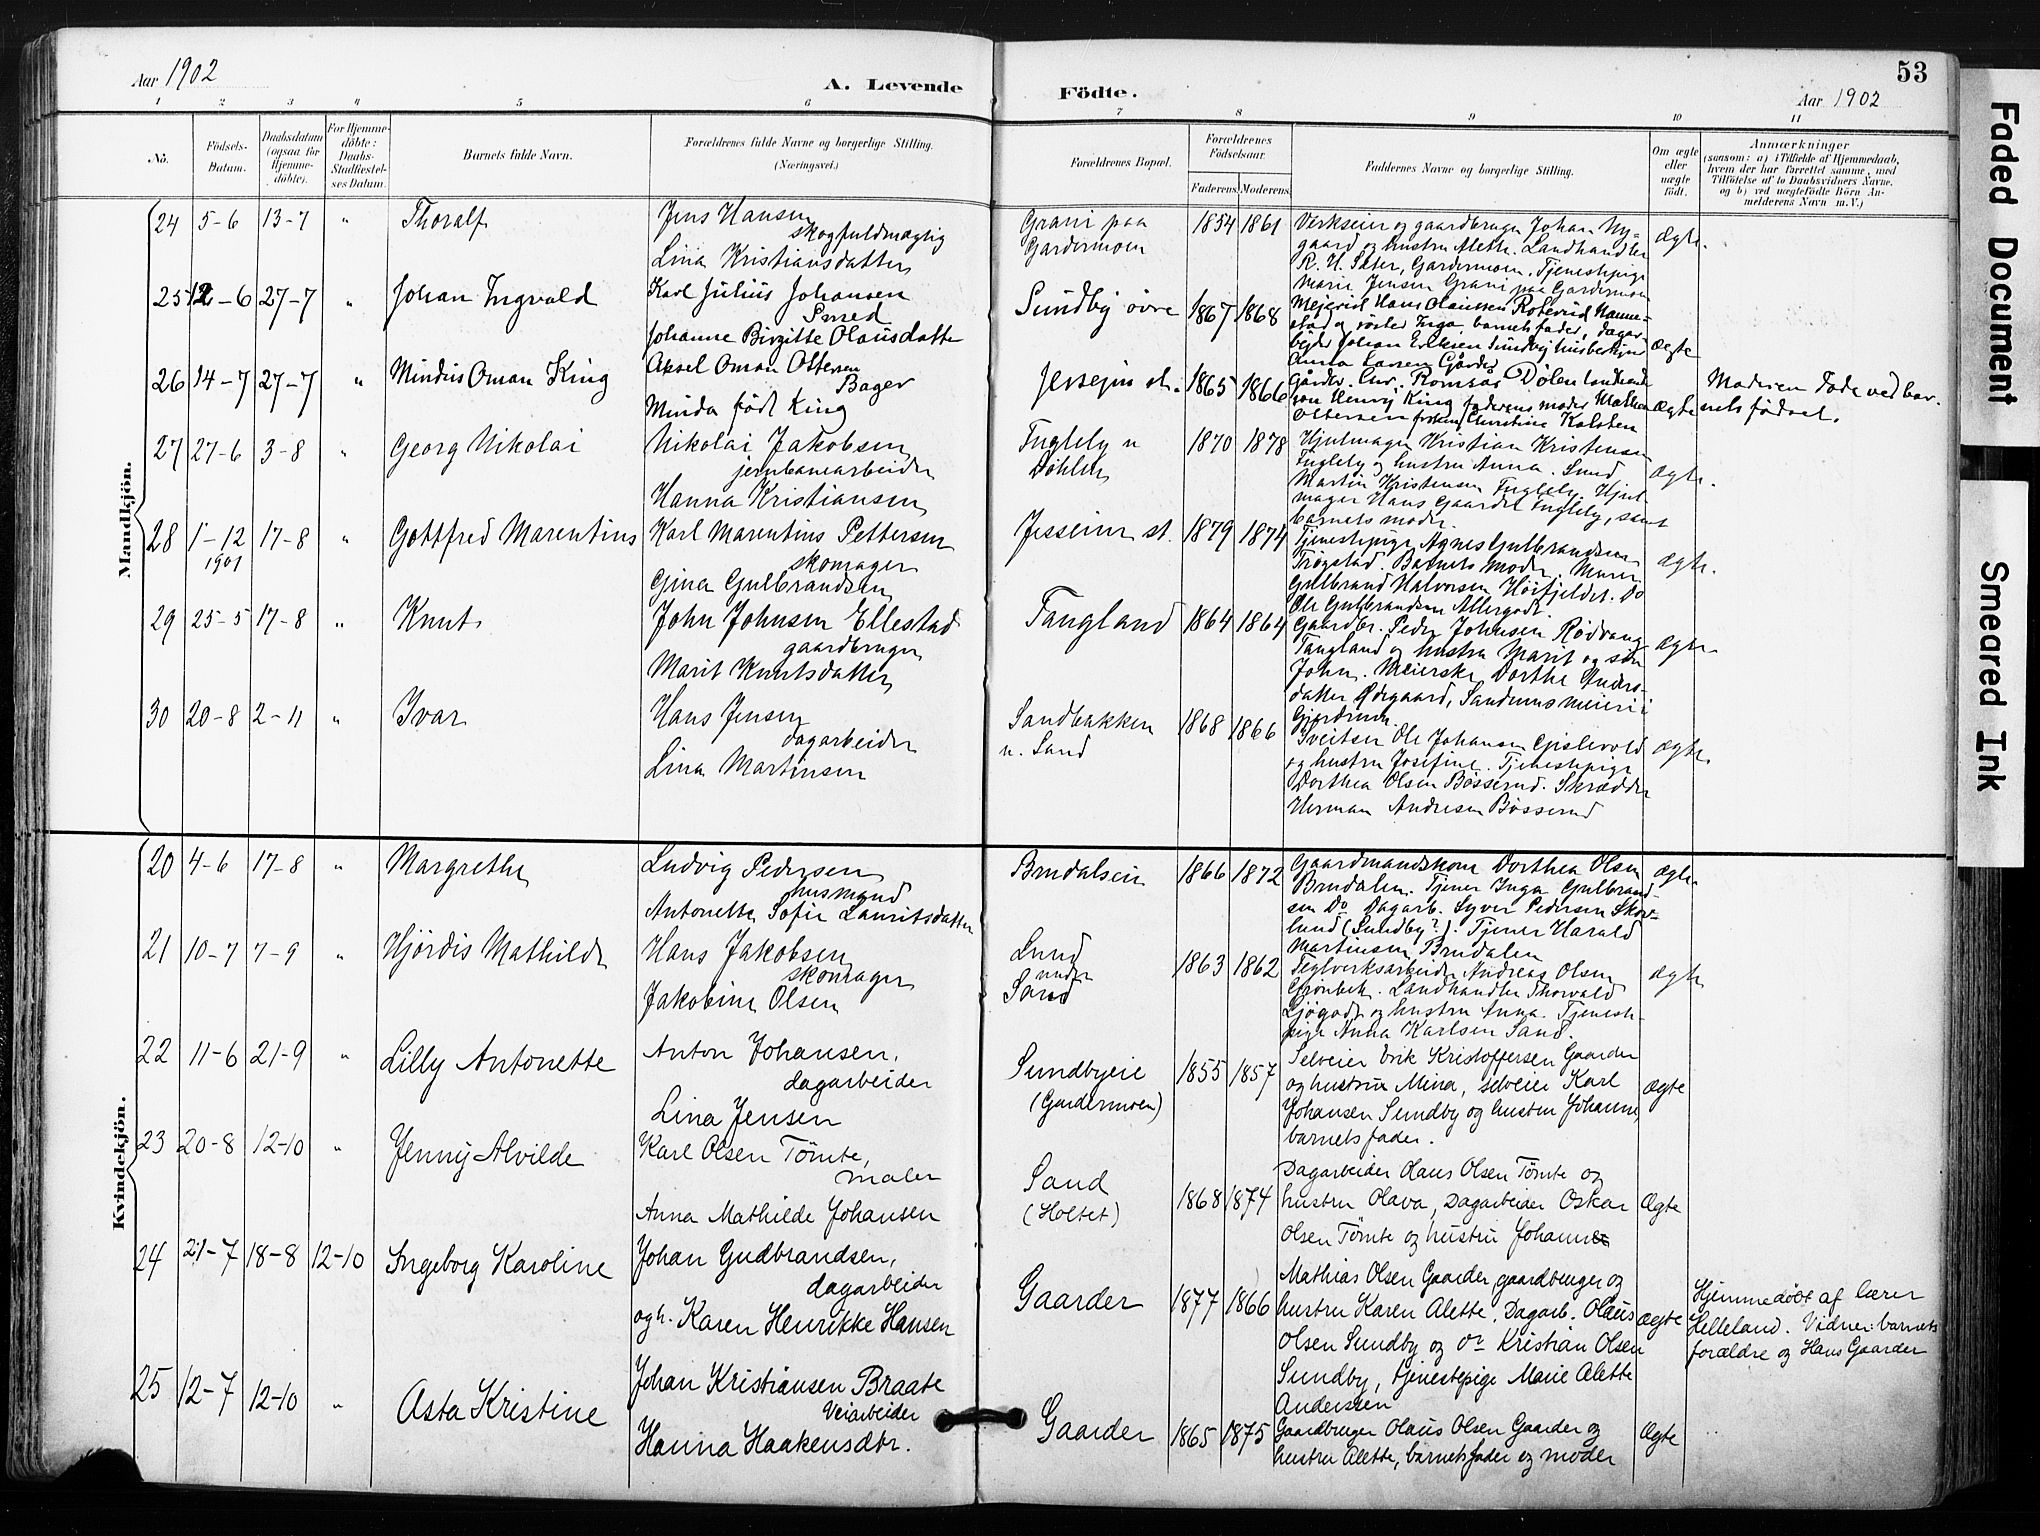 Aar 1902
A. Levende
Födte.
53
Aar 1902
1 2 3 4 5 6 7 8 9 10 11
No.
Födsels-
Datum.
Daabsdatum
(ogsaa for
Hjemme-
döbte).
For Hjemme-
döbte:
Daabs-
Stadfæstel-
ses Datum.
Barnets fulde Navn.
Forældrenes fulde Navne og borgerlige Stilling.
(Næringsvei.)
Forældrenes Bopæl.
Forældrenes
Födselsaar.
Faderens. Moderens.
Faddernes Navne og borgerlige Stilling.
Om ægte
eller
uægte
födt.
Anmærkninger
(saasom: a) i Tilfælde af Hjemmedaab,
hvem der har forrettet samme, med
Tilföielse af to Daabsvidners Navne,
og b) ved uægtefödte Börn An-
melderens Navn m. V.)
Mandkjön.
24 5-6 13-7 " Thoralf
Jens Hansen
skogfuldmægtig
Lina Kristiansdatter
Grani paa
Gardermoen
1854 1861
Verkseier og gaardbruger Johan Ny-
gaard og hustru Alette. Landhandler
R. H. Sæter, Gardermoen. Tjenestepige
Marie Jensen Grani paa Gardermoen
ægte.
25 12-6 27-7 " Johan Ingvald
Karl Julius Johansen
Smed
Johanne Birgitte Olausdatter
Sundby øvre
1867 1868
Hans Olaussen
søster Inga, barnets fader, dagar-
beider Johan Eriksen Sundby
Anna Larsen Gårder
ægte
26 14-7 27-7 " Mindius Oman King
Aksel Oman Ottersen
Bager
Minda født King
Jessejm st.
1865 1866
Gårdbr. Chr. Romsås Dølen
Henry King faderens moder
Ottersen frøken Christine Karlsten
ægte
Moderen døde ved bar-
nets fødsel.
27 27-6 3-8 " Georg Nikolai
Nikolai Jakobsen
jernbanearbeider
Hanna Kristiansen
Fugleby u
Døhlen
1870 1878
Hjulmager Kristian Kristensen
Fugleby og hustru Anna. Smed
Martin Kristensen Fugleby. Hjul-
mager Hans Gaarder Fugleby, samt
barnets moder.
ægte.
28 1-12 17-8 " Gottfred Marentius
1901
Karl Marentius Pettersen
skomager
Gina Gulbrandsen
Jesseim st.
1879 1874
Tjenestepige Agnes Gulbrandsen
Trøgstad. Barnets moder. Murer
Gulbrand Halvorsen Høifjeldet. Do
Ole Gulbrandsen Allergodt
ægte.
29 25-5 17-8 " Knut
John Johnsen Ellestad
gaardbruger
Marit Knutsdatter
Tangland
1864 1864
Gaardbr. Peder Johnsen Rødvang
Tangland og hustru Marit og søn
John. Meierske Dorthe Anders-
datter Ødegaard, Sandums meieri i
Gjerdrum.
ægte
30 20-8 2-11 " Ivar
Hans Jensen
dagarbeider
Lina Martinsen
Sandbakken
u. Sand
1868 1866
Sveitser Ole Johansen Gislevold
og hustru Josefine. Tjenestepige
Dorthea Olsen Bøsserud. Skrædder
Herman Andresen Bøsserud
ægte
Kvindekjön.
20 4-6 17-8 " Margrethe
Ludvig Pedersen
husmand
Antonette Sofie Lauritsdatter
Brudalseie
1866 1872
Gaardmandskone Dorthea Olsen
Brudalen. Tjener Inga Gulbrand-
sen Do Dagarb. Syver Pedersen Skov-
lund (Sundby?). Tjener Harald
Martinsen Brudalen
ægte.
21 10-7 7-9 " Hjördis Mathilde
Hans Jakobsen
skomager
Jakobine Olsen
Lund
under
Sand
1863 1862
Teglverksarbeider Andreas Olsen
Grønbek. Landhandler Thorvald
Ljøgodt og hustru Anna. Tjeneste-
pige Anna Karlsen Sand.
ægte
22 11-6 21-9 " Lilly Antonette
Anton Johansen,
dagarbeider
Lina Jensen
Sundbyeie
(Gardermoen)
1855 1857
Selveier Erik Kristoffersen Gaarder
og hustru Mina, selveier Karl
Johansen Sundby og hustru Johanne,
barnets fader.
ægte
23 20-8 12-10 " Jenny Alvilde
Karl Olsen Tömte,
maler
Anna Mathilde Johansen
Sand
(Holtet)
1868 1874
Dagarbeider Hans Olsen Tömte og
hustru Olava, Dagarbeider Oskar
Olsen Tömte og hustru Johanne
Ægte
24 21-7 18-8 12-10 Ingeborg Karoline
Johan Gudbrandsen,
dagarbeider
og h. Karen Henrikke Hansen
Gaarder
1877 1866
Mathias Olsen Gaarder, gaardbruger og
hustru Karen Alette, Dagarb. Olaus
Olsen Sundby og do Kristian Olsen
Sundby, tjenestepige Marie Alette
Andersen
ægte
Hjemmedöbt af lærer
Helleland. Vidner: barnets
forældre og Hans Gaarder
25 12-7 12-10 " Asta Kristine
Johan Kristiansen Braate
Veiarbeider
Hanna Haakensdtr.
Gaarder
1865 1875
Gaardbruger Olaus Olsen Gaarder og
hustru Alette, barnets fader og moder
Ægte
Faded Document
Smeared Ink